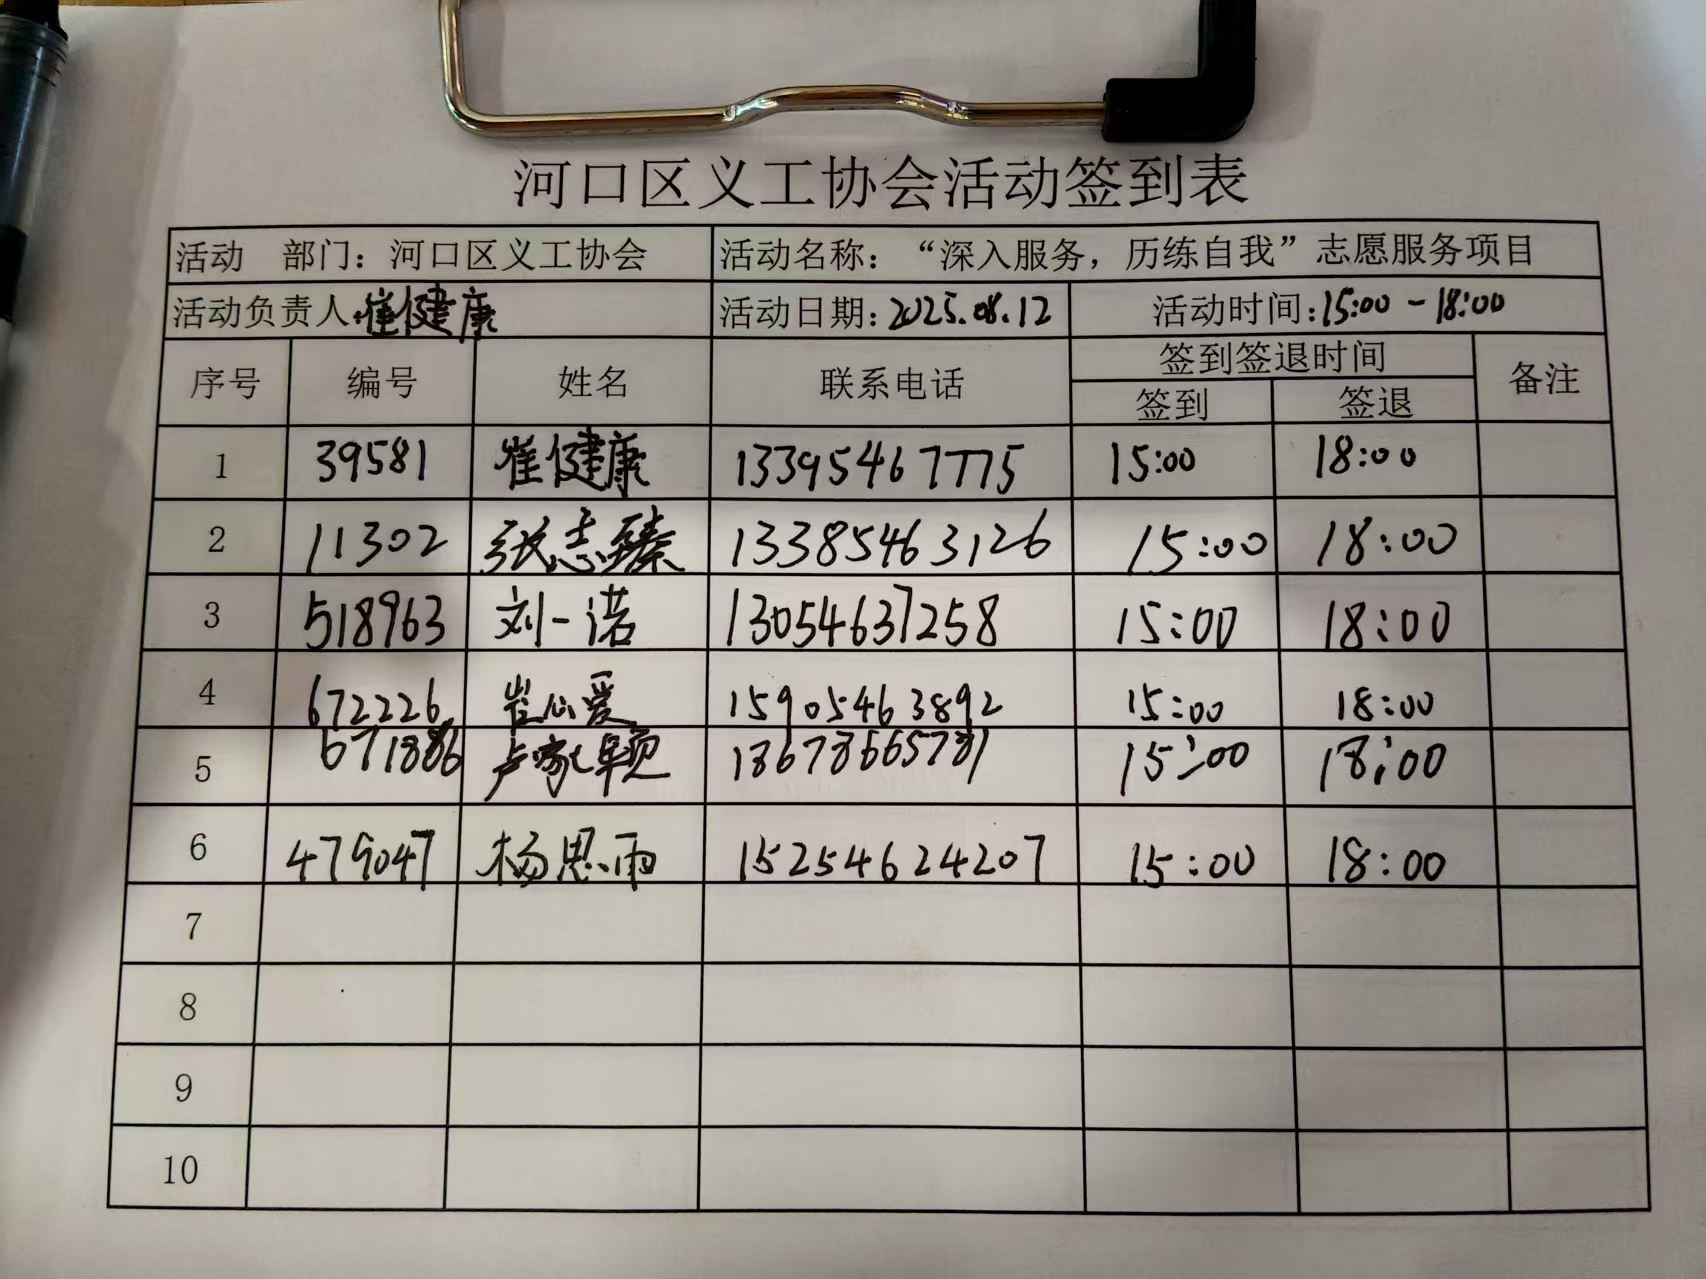 河口区义工协会活动签到表
活动 部门：河口区义工协会 活动名称：“深入服务，历练自我”志愿服务项目
活动负责人：崔健康 活动日期：2025.08.12 活动时间：15:00-18:00
序号 编号 姓名 联系电话 签到签退时间 备注
签到 签退
1 39581 崔健康 13395467775 15:00 18:00
2 11302 张志臻 13385463126 15:00 18:00
3 518963 刘一诺 13054637258 15:00 18:00
4 672226 崔心爱 15905463892 15:00 18:00
5 671886 卢家颖 18678665781 15:00 18:00
6 479047 杨思雨 15254624207 15:00 18:00
7
8
9
10